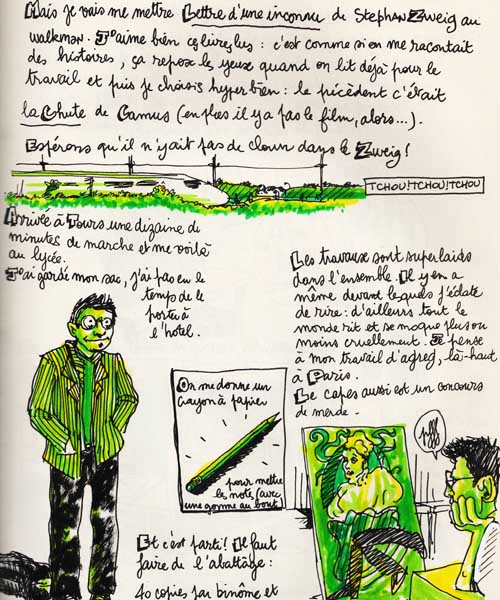 Mais je vais me mettre Lettre d'une inconnu de Stephan Zweig au
walkman. J'aime bien ces livres lus : c'est comme si on me racontait
des histoires, ça repose les yeux quand on lit déjà pour le
travail et puis je choisis hyper bien : le précédent c'était
la Chute de Camus (en plus il y a pas le film, alors...).
Espérons qu'il n'y ait pas de clown dans le Zweig !
TCHOU!TCHOU!TCHOU
Arrivée à Tours une dizaine de
minutes de marche et me voilà
au lycée.
J'ai gardé mon sac, j'ai pas eu le
temps de le
porter à
l'hôtel.
Les travaux sont super laids
dans l'ensemble. Il y en a
même devant lequels j'éclate
de rire : d'ailleurs tout le
monde rit et se moque plus ou
moins cruellement. Je pense
à mon travail d'agreg, là-haut
à Paris.
Le capes aussi est un concours
de merde.
On me donne un
crayon à papier
pour mettre
la note (avec
une gomme au bout)
pfff
Et c'est parti ! Il faut
faire de l'abattage :
40 copies par binôme et